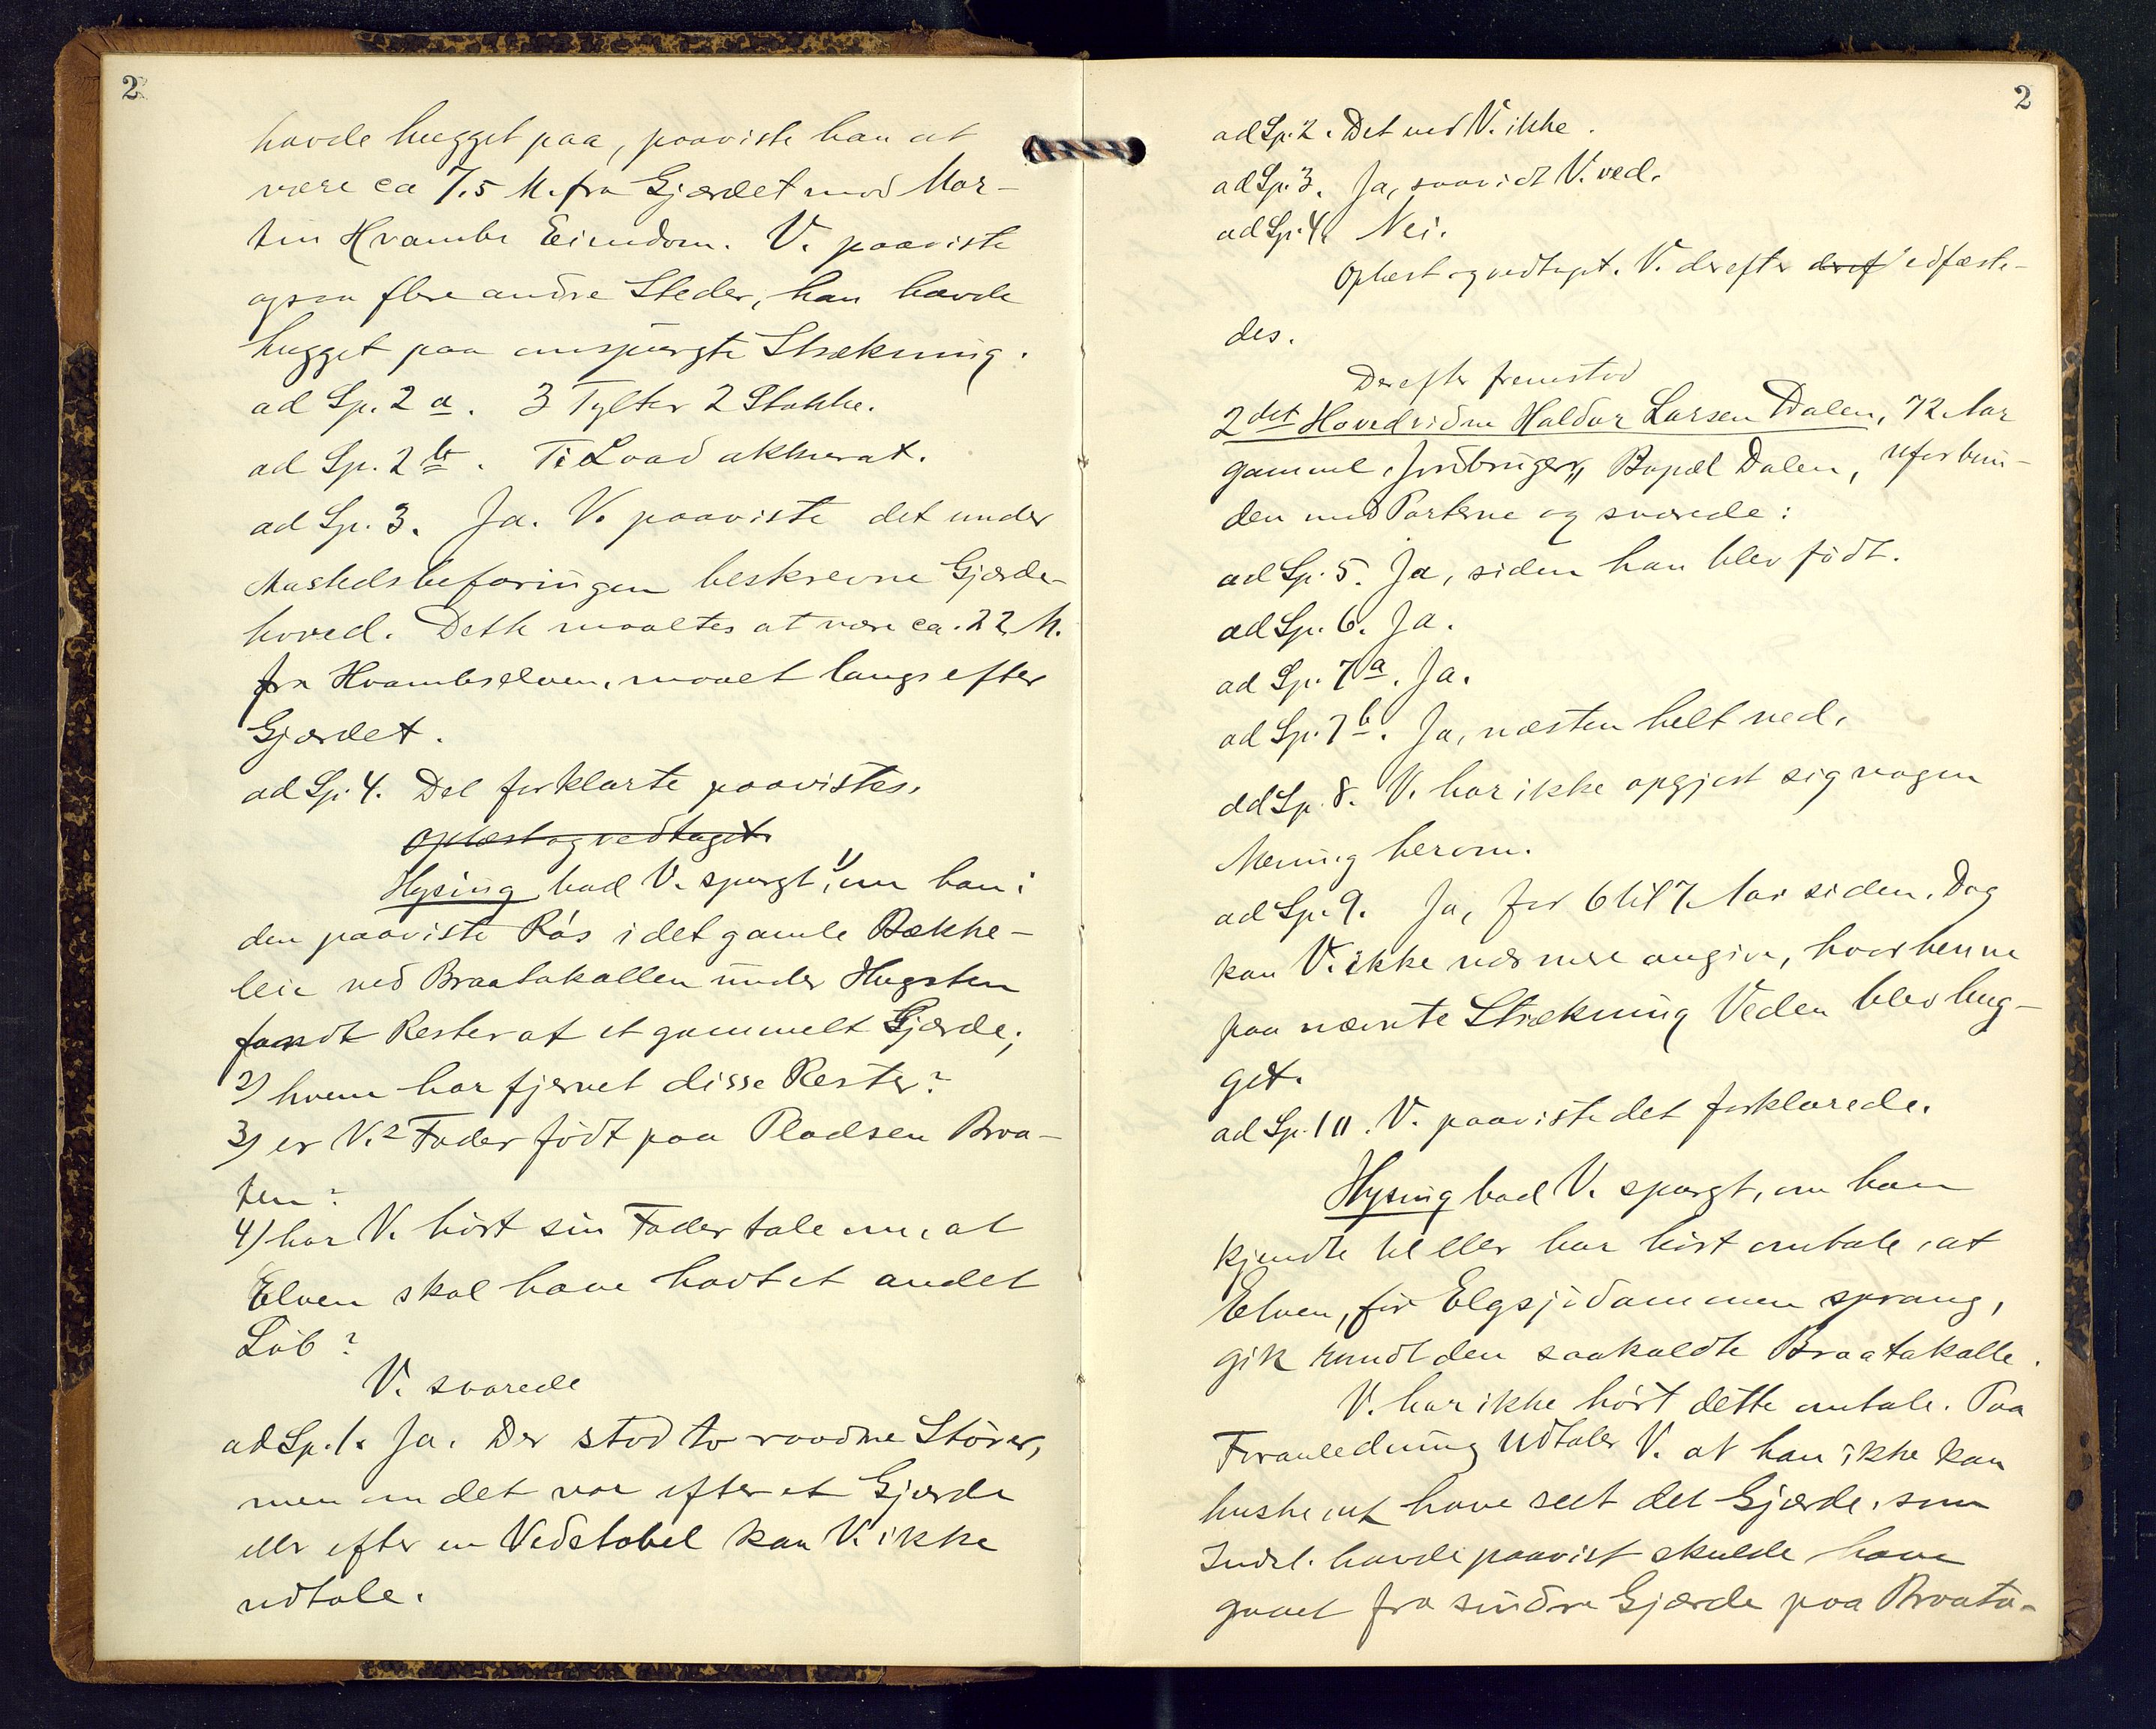 2
havde hugget paa, paaviste han at
være ca 7.5 M. fra Gjærdet mod Mar-
tin Hvambs Eiendom. V. paaviste
ogsaa flere andre Steder, han havde
hugget paa omspurgte Strækning.
ad Sp. 2 a. 3 Tylter 2 Stokke.
ad Sp. 2 b. Ti Lvad akkurat.
ad Sp. 3. Ja. V. paaviste det under
Aastedsbefaringen beskrevne Gjærde-
hoved. Dette maaltes at være ca. 22 M.
fra Hvambselven, maalt langs efter
Gjærdet.
ad Sp. 4. Det forklarte paavistes.
Oplæst og vedtaget.
Hysing bad V. spurgt 1) om han i
den paaviste Rás i det gamle Bække-
leie ved Braatakallen under Hugsten
fandt Rester af et gammelt Gjærde;
2) hvem har fjernet disse Rester?
3) er V.s Fader født paa Pladsen Braa-
ten?
4) har V. hørt sin Fader tale om, at
Elven skal have havt et andet
Løb?
V. svarede
ad Sp. 1. Ja. Der stod to raadne Stører,
men om det var efter et Gjærde
eller efter en Vedstabel kan V. ikke
udtale.
2
ad Sp. 2. Det ved V. ikke.
ad Sp. 3. Ja, saavidt V. ved.
ad Sp. 4. Nei.
Oplæst og vedtaget. V. derefter deref edfæste-
des.
Derefter fremstod
2det Hovedvidne Haldor Larsen Dalen, 72 Aar
gammel, Jordbruger, Bopæl Dalen, uforbun-
den med Parterne og svarede:
ad Sp. 5. Ja, siden han blev født.
ad Sp. 6. Ja.
ad Sp. 7 a. Ja.
ad Sp. 7 b. Ja, næsten helt ned.
ad Sp. 8. V. har ikke opgjort sig nogen
Mening herom.
ad Sp. 9. Ja, for 6 til 7 Aar siden. Dog
kan V. ikke nærmere angive, hvorhenne
paa nævnte Strækning Veden blev hug-
get.
ad Sp. 10. V. paaviste det forklarede.
Hysing bad V. spurgt, om han
kjendte til eller har hørt omtale, at
Elven, før Elgsjødammen sprang,
gik rundt den saakaldte Braatakalle.
V. har ikke hørt dette omtale. Paa
Foranledning udtaler V. at han ikke kan
huske at have seet det Gjærde, som
Indst. havde paavist skulde have
gaaet fra søndre Gjærde paa Braata-